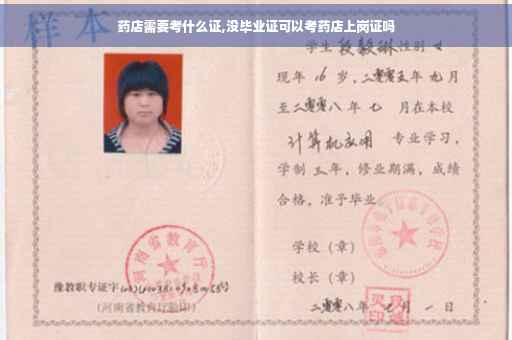 药店需要考什么证,没毕业证可以考药店上岗证吗
样本
学生段毅琳性别女
现年16岁,二零零五年九月
至二零零八年七月在本校
计算机应用 专业学习,
学制三年,修业期满,成绩
合格,准予毕业。
学校(章)
校长(章)
二零零八年七月一日
河南省教育厅
豫教职专证字
(河南省教育厅验印)